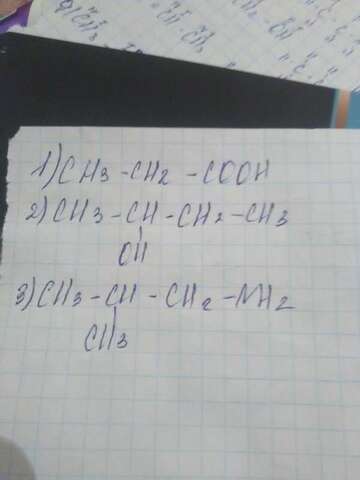 1) CH3 - CH2 - COOH
2) CH3 - CH - CH2 - CH3
OH
3) CH3 - CH - CH2 - NH2
CH3